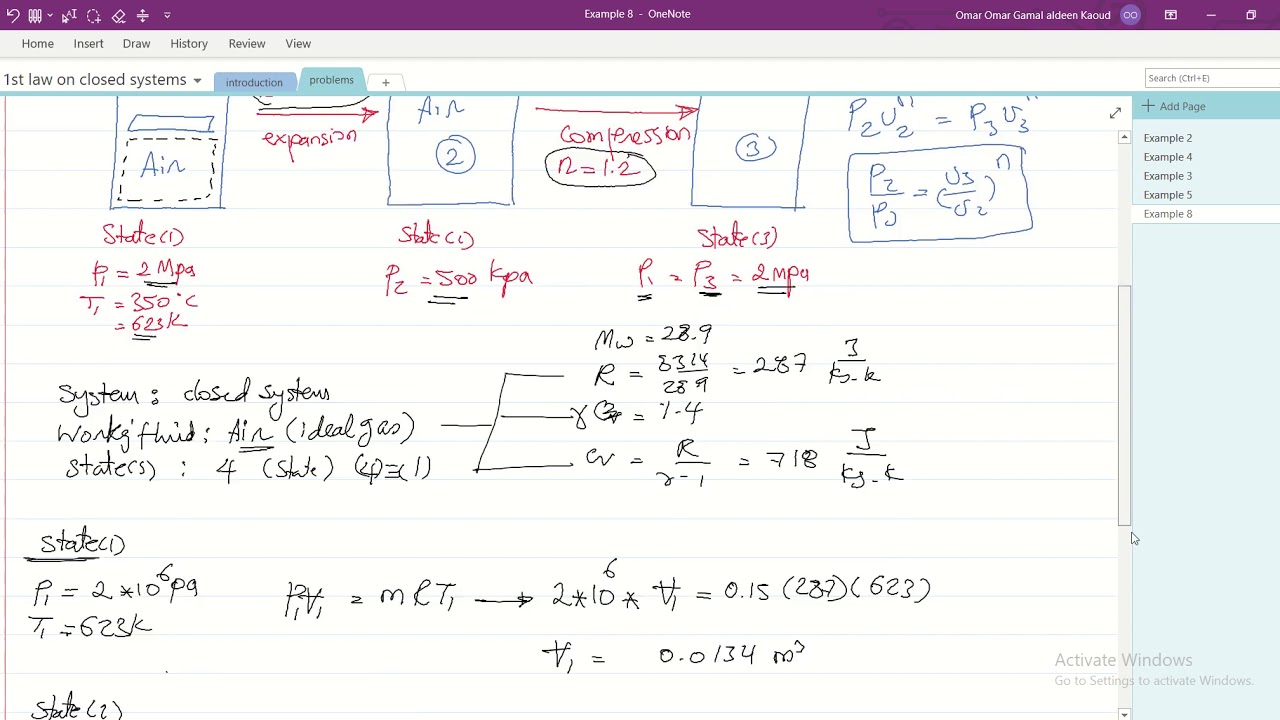 Example 8 - OneNote
Omar Omar Gamal aldeen Kaoud OO
Home Insert Draw History Review View
1st law on closed systems introduction problems +
Search (Ctrl+E)
Add Page
Example 2
Example 4
Example 3
Example 5
Example 8
Air
expansion
Air
2
compression
n = 1.2
3
P2 v2^n = P3 v3^n
P2/P3 = (v3/v2)^n
State(1)
P1 = 2 Mpa
T1 = 350°C
= 623K
P2 = 500 kpa
State(3)
P1 = P3 = 2 Mpa
Mw = 28.9
R = 8314/28.9 = 287 J/kg.k
γ = 1.4
cv = R/γ-1 = 718 J/kg.k
System: closed system
Work'g fluid: Air (ideal gas)
State(s): 4 (State) (4) ≡ (1)
State(1)
P1 = 2*10^6 pa
T1 = 623k
P1V1 = mRT1 → 2*10^6 * V1 = 0.15 (287)(623)
V1 = 0.0134 m³
State(2)
Activate Windows
Go to Settings to activate Windows.